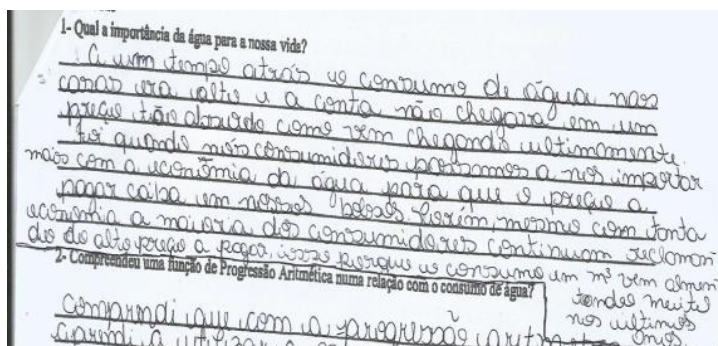 1- Qual a importância da água para a nossa vida?
A um tempo atrás o consumo de água nas
casas era alto e a conta não chegava em um
preço tão absurdo como vem chegando ultimamente.
Foi quando nós consumidores passamos a nos importar
mais com a economia da água para que o preço a
pagar caiba em nossos bolsos. Porém, mesmo com tanta
economia a maioria dos consumidores continuam reclaman
do do alto preço a pagar, isso porque o consumo em m³ vem almen
tando muito
nos ultimos
anos.
2- Compreendeu uma função de Progressão Aritmética numa relação com o consumo de água?
Comprendi que com a progressão
aprendi a utilizar